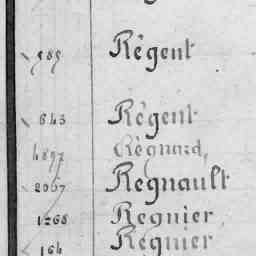 989 Régent
643 Régent
4897 Régnard,
2067 Regnault
1268 Regnier
164 Regnier